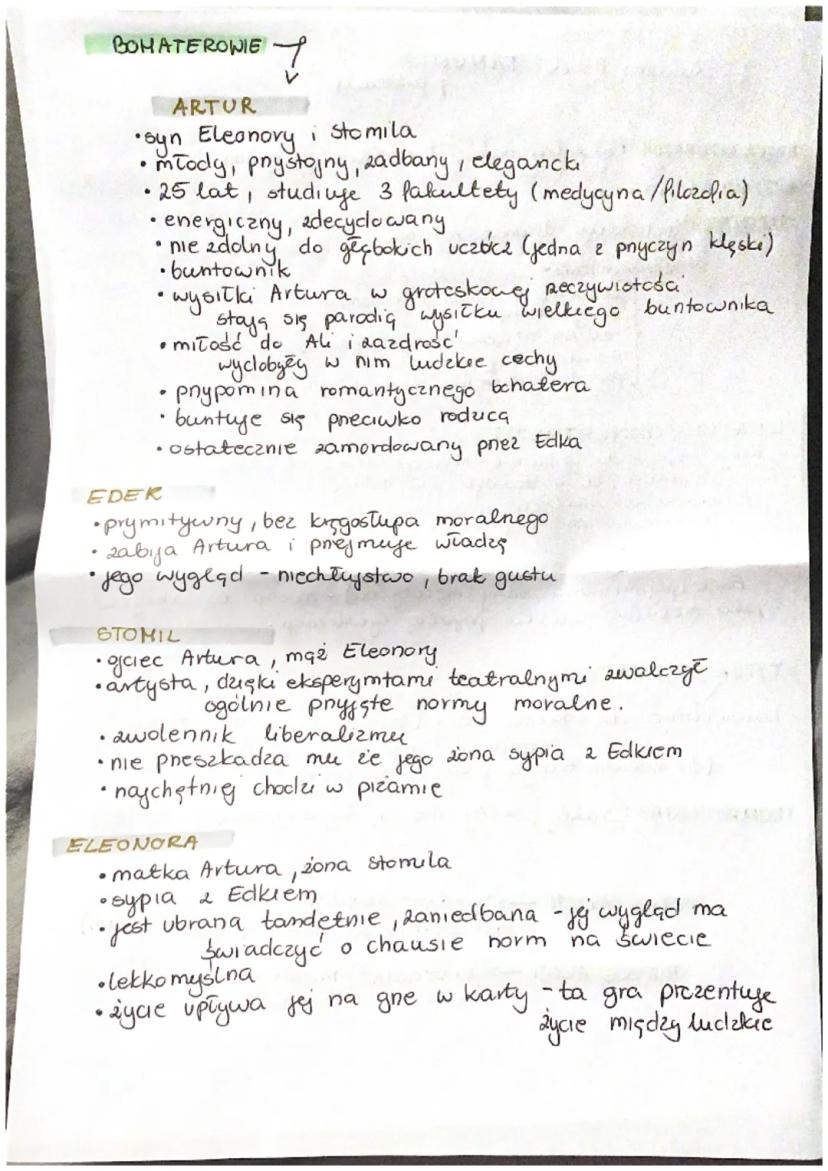 BOHATEROWIE
ARTUR
• syn Eleonory i Stomila
• młody, przystojny, zadbany, elegancki
• 25 lat, studiuje 3 fakultety (medycyna/filozofia)
• energiczny, zdecydowany
• nie zdolny do głębokich uczóćz (jedna z przyczyn klęski)
• buntownik
• wysiłki Artura w groteskowej rzeczywistości
stają się parodią wysiłku wielkiego buntownika
• miłość do Ali i zazdrość
wydobyły w nim ludzkie cechy
• przypomina romantycznego bohatera
• buntuje się przeciwko rodzicą
• ostatecznie zamordowany przez Edka
EDEK
• prymitywny, bez kręgosłupa moralnego
• zabija Artura i przejmuje władzę
• jego wygląd - niechlujstwo, brak gustu
STOMIL
• ojciec Artura, mąż Eleonory
• artysta, dzięki eksperymtami teatralnymi zwalczył
ogólnie przyjęte normy moralne.
• zwolennik liberalizmu
• nie przeszkadza mu że jego żona sypia z Edkiem
• najchętniej chodzi w piżamie
ELEONORA
• matka Artura, żona Stomila
• sypia z Edkiem
• jest ubrana tandetnie, zaniedbana - jej wygląd ma
świadczyć o chausie norm na świecie
• lekkomyślna
• życie upływa jej na grze w karty - ta gra prezentuje
życie między ludzkie